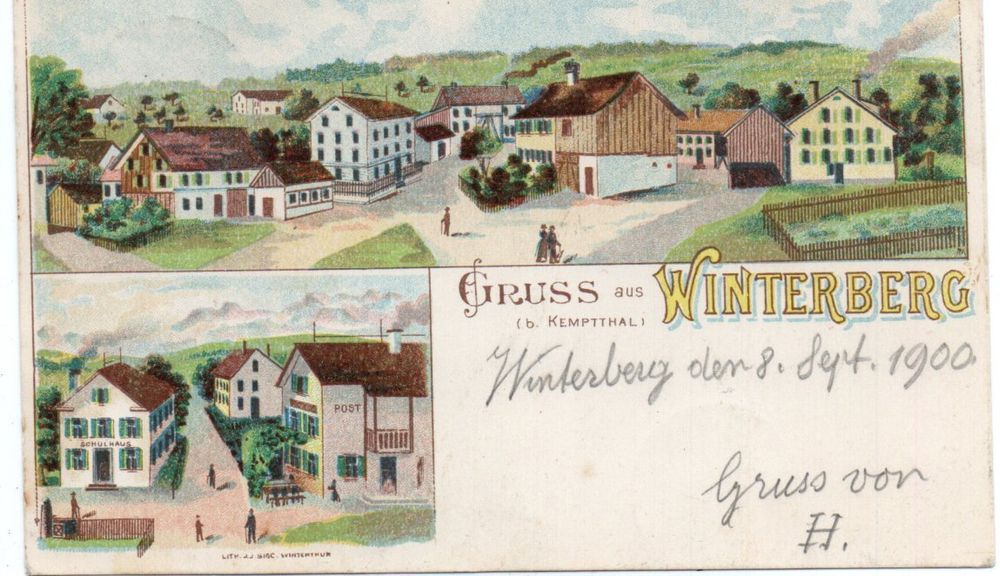 GRUSS aus WINTERBERG
(b. KEMPTTHAL)
Winterberg den 8. Sept. 1900.
Gruss von
H.
SCHULHAUS
POST
LITH. J.J. SIGG. WINTERTHUR